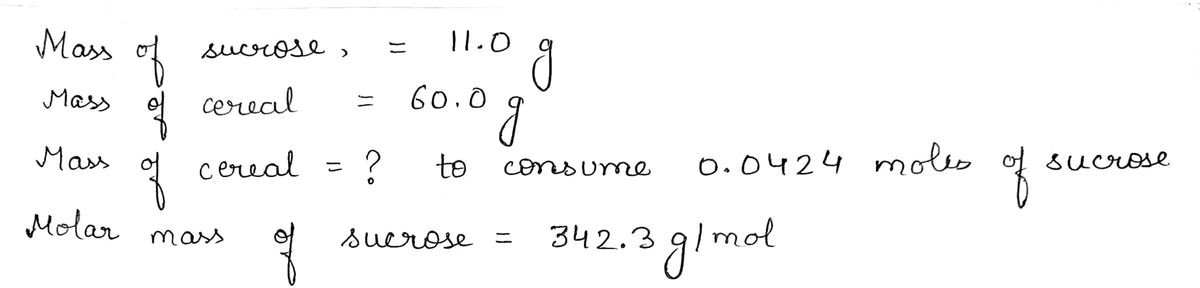 Mass of sucrose, = 11.0 g
Mass of cereal = 60.0 g
Mass of cereal = ? to consume 0.0424 moles of sucrose
Molar mass of sucrose = 342.3 g/mol